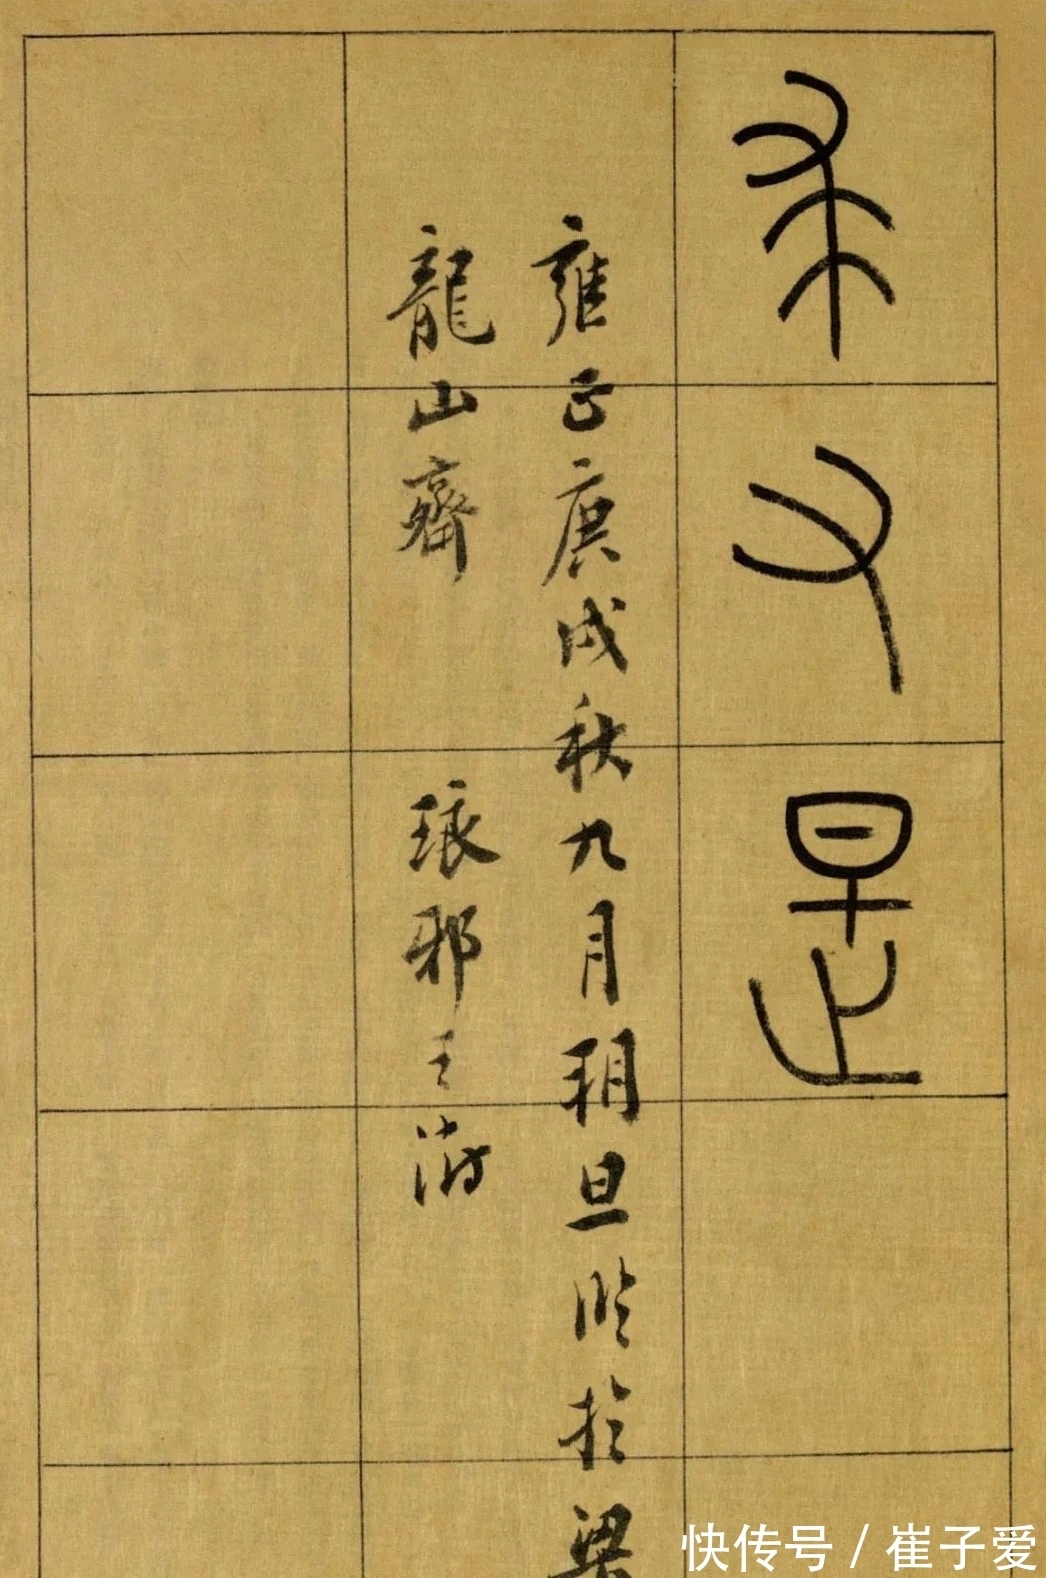 又是
雍正庚戌秋九月朔旦临於梁
龍山齋 琅邪王澍
快传号 / 崔子爱